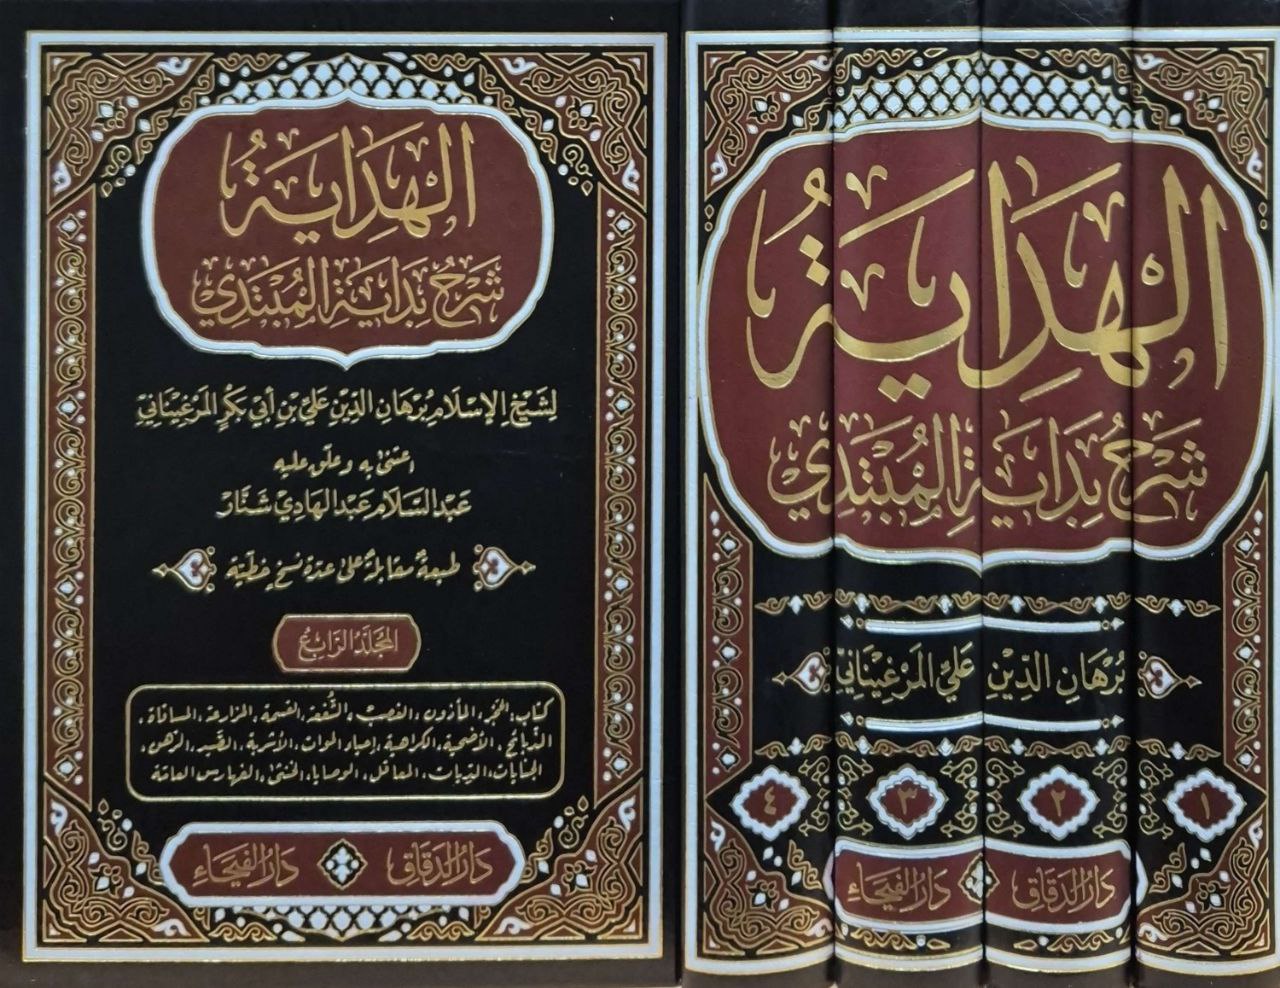 الهِدَايَةُ
شَرْحُ بِدَايَةِ المُبْتَدِي
لِشَيْخِ الإِسْلَامِ بُرْهَانِ الدِّينِ عَلِيِّ بْنِ أَبِي بَكْرٍ المَرْغِينَانِيِّ
اعتنى به وعلق عليه
عَبْدُ السَّلَامِ عَبْدُ الهَادِي شَنَّار
طبعةٌ مقابلةٌ على عدة نسخ خطية
المُجَلَّدُ الرَّابِعُ
كتاب: الحَجْر، المأذون، الغصب، الشُّفعة، القسمة، المزارعة، المساقاة،
الذبائح، الأضحية، الكراهية، إحياء الموات، الأشربة، الصَّيد، الرَّهن،
الجنايات، الدِّيات، المعاقل، الوصايا، الخنثى، الفهارس العامة
دَارُ الدَّقَّاق
دَارُ الفَيْحَاء
الهِدَايَةُ
شَرْحُ بِدَايَةِ المُبْتَدِي
بُرْهَانِ الدِّينِ عَلِيّ المَرْغِينَانِيّ
١ ٢ ٣ ٤
دَارُ الدَّقَّاق
دَارُ الفَيْحَاء